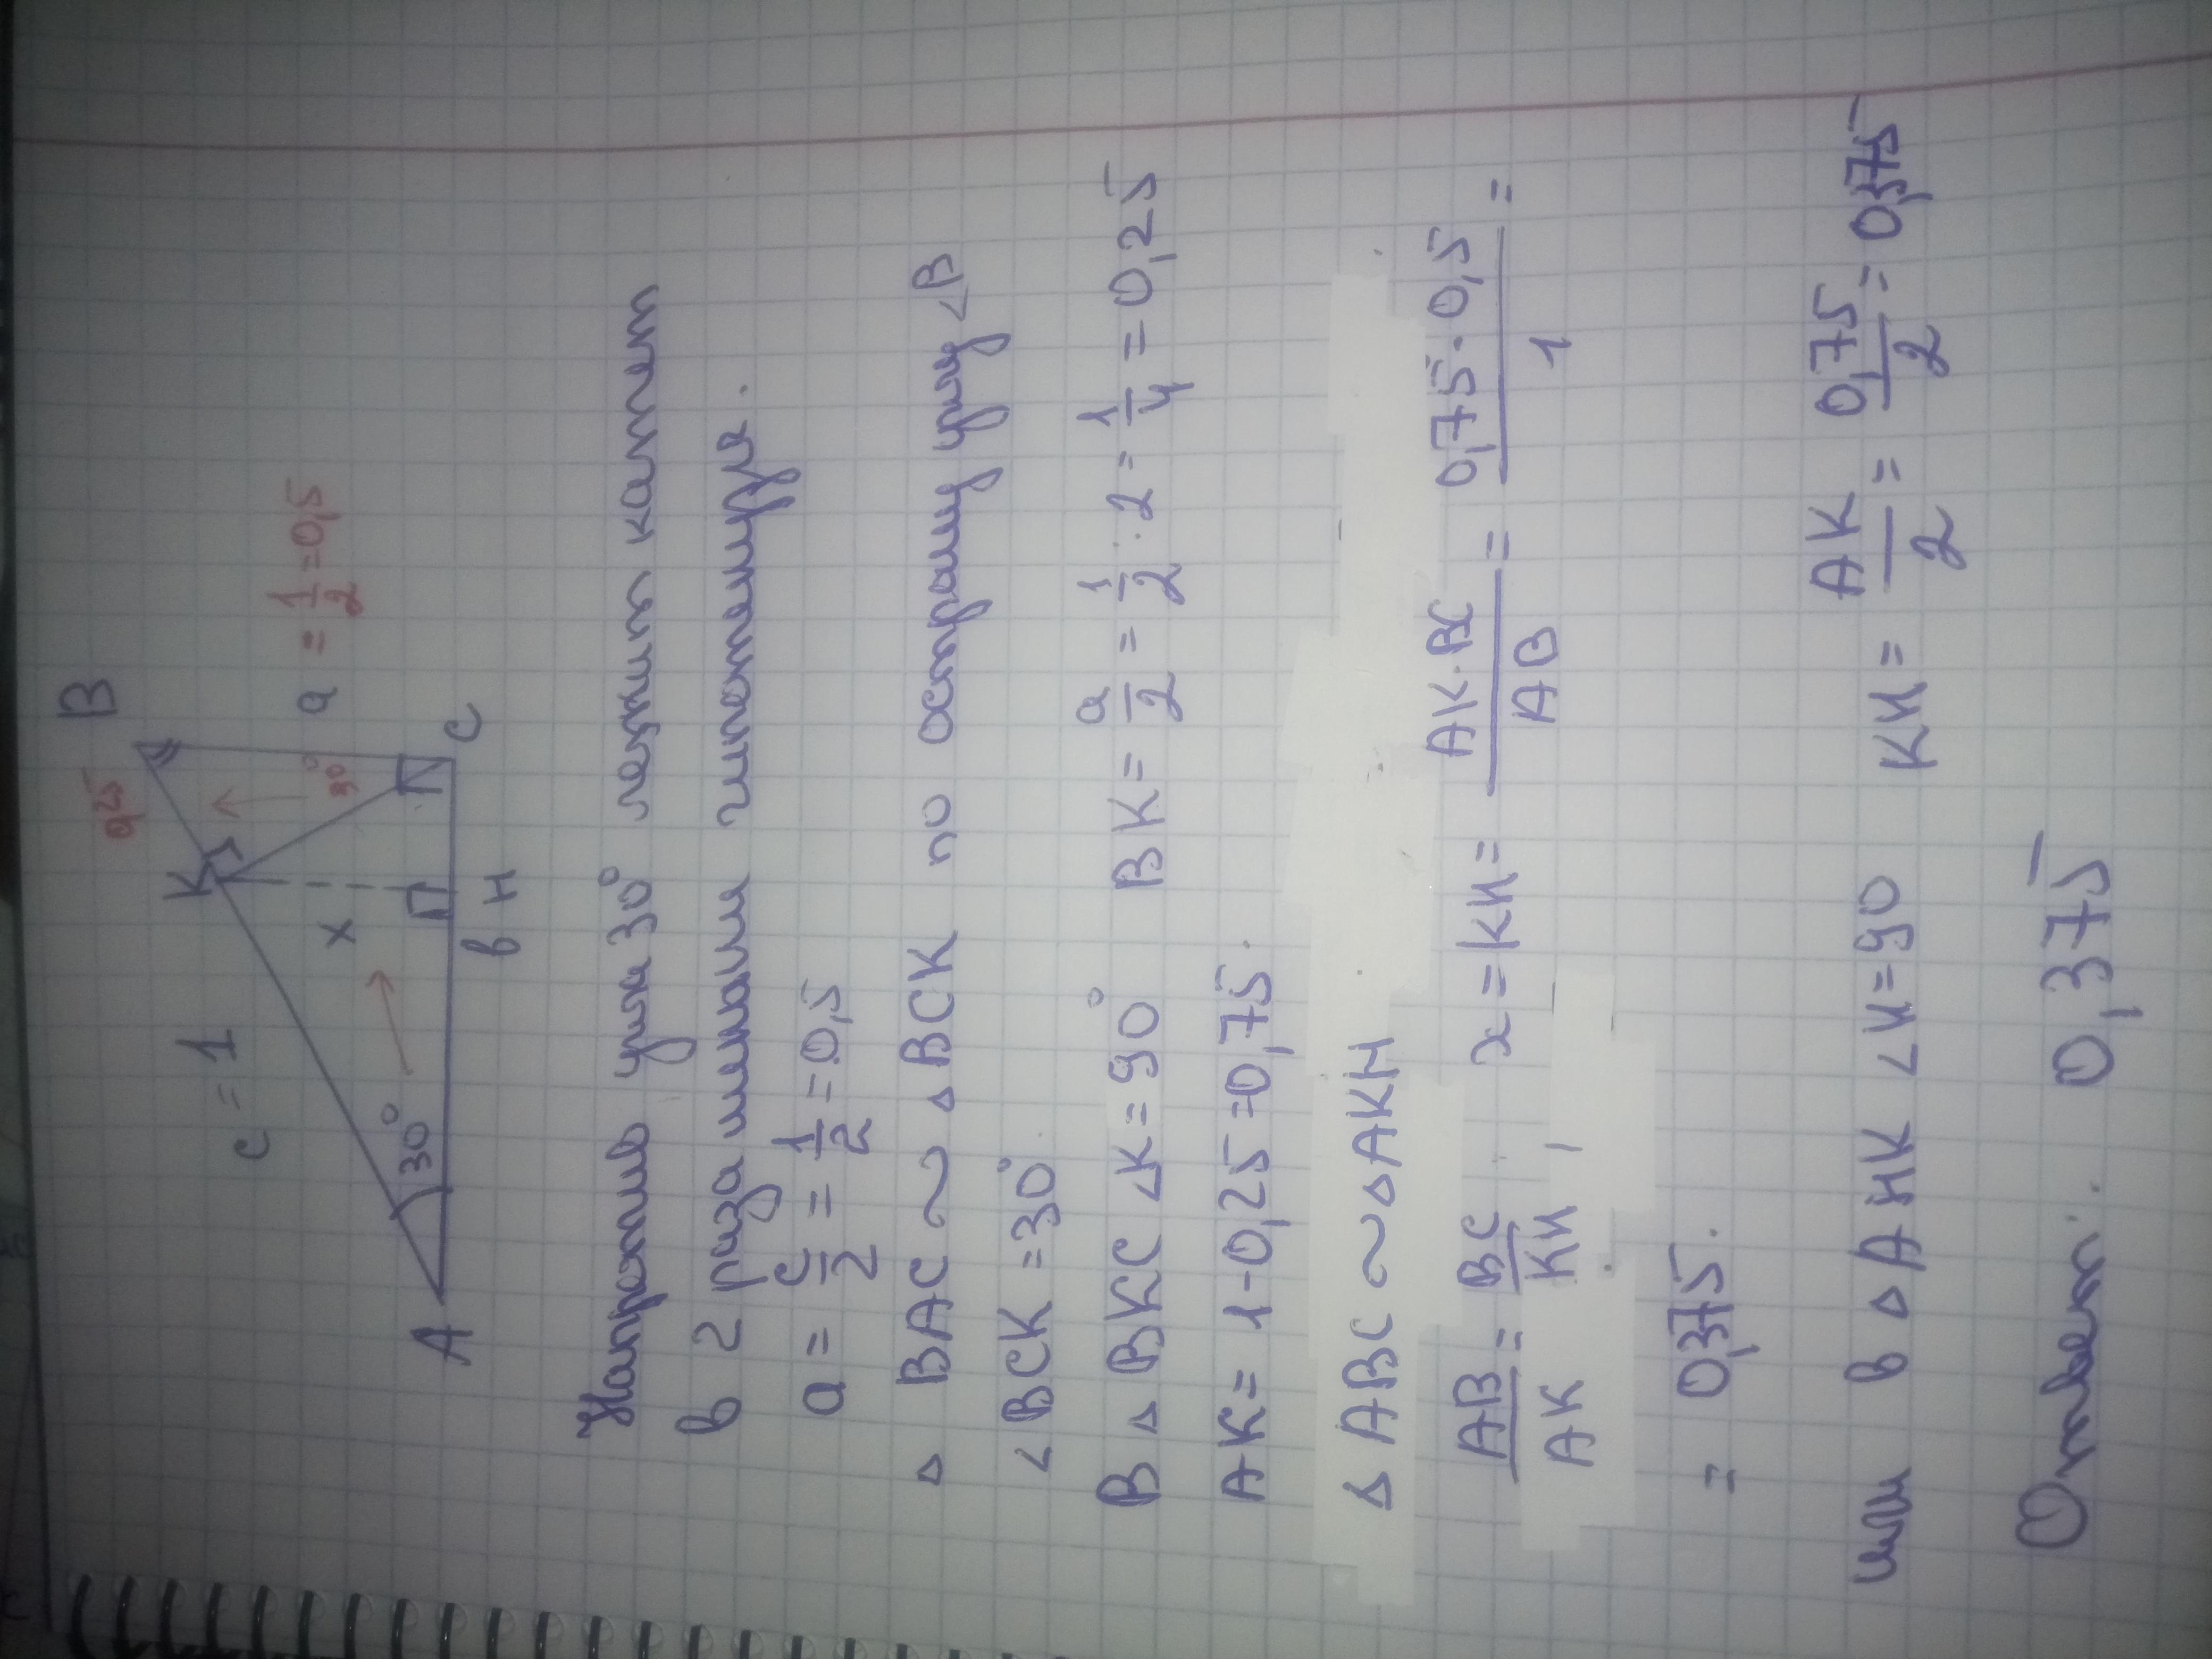 B
0,25
K
c = 1
a = 1/2 = 0,5
30°
x
A
30°
C
в H
Напротив угла 30° лежит катет
в 2 раза меньше гипотенузы.
a = c/2 = 1/2 = 0,5
△ BAC ∾ △ BCK по острому углу ∠B
∠ BCK = 30°
В △ BKC ∠K = 90° BK = a/2 = 1/2 : 2 = 1/4 = 0,25
AK = 1-0,25 = 0,75.
△ ABC ∾ △ AKH
AB/AK = BC/KH, x = KH = AK·BC/AB = 0,75·0,5/1 =
= 0,375.
или в △ AHK ∠H = 90 KH = AK/2 = 0,75/2 = 0,375
Ответ: 0,375